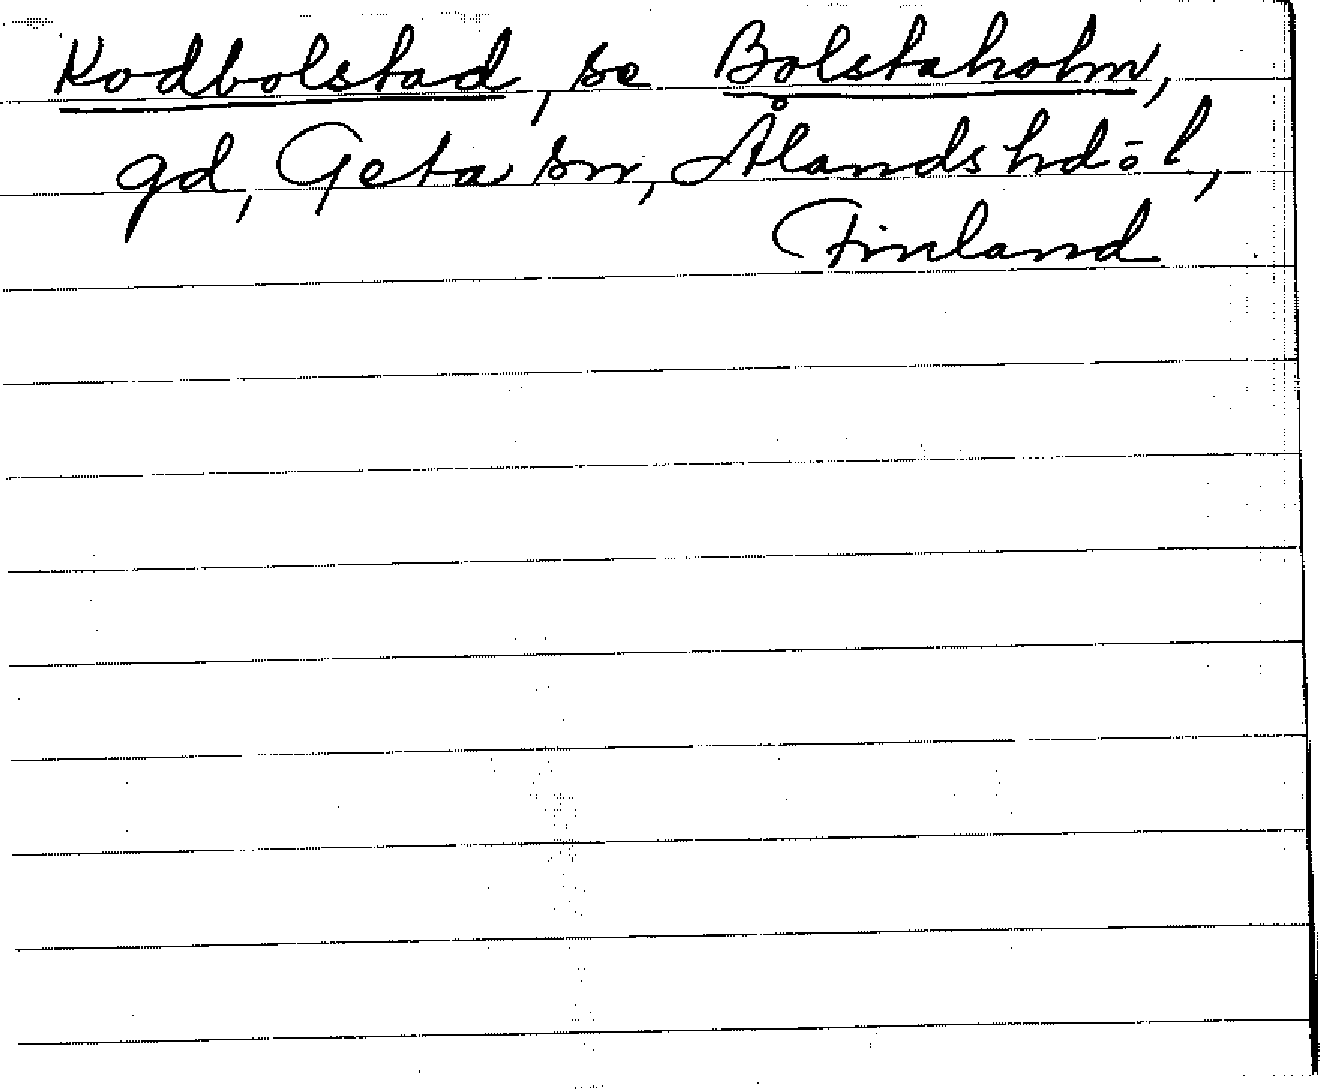 Kodbolstad, se Bolstaholm,
gd, Geta sn, Ålands hd o l,
Finland